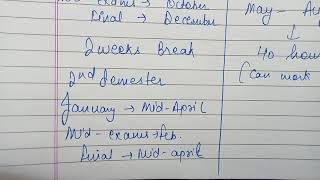 exams → October
Final → December
2 weeks Break
2nd Semester
January → Mid-April
Mid-exams → Feb.
Final → Mid-april
May - 
↓
40 hou
(Can work